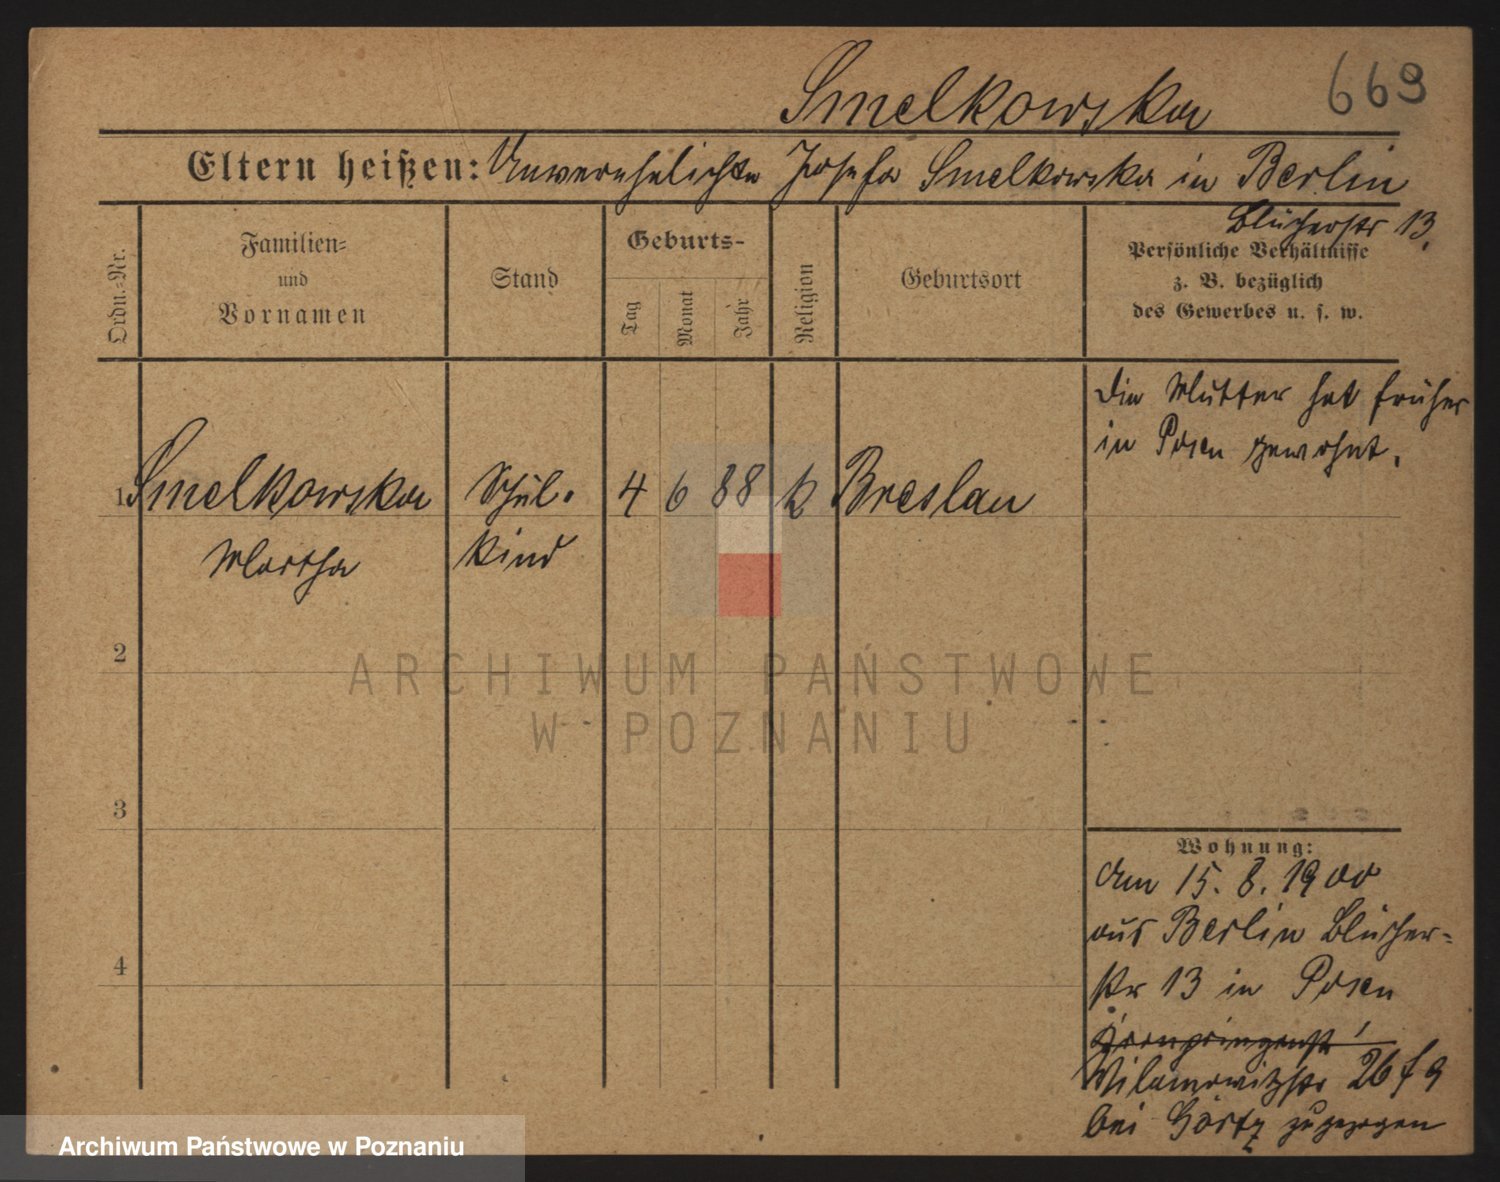 Smelkowska
669
Eltern heißen: Unverehelichte Josefa Smelkowska in Berlin
Blücherstr 13.
Ordn.-Nr.
Familien-
und
Vornamen
Stand
Geburts-
Tag
Monat
Jahr
Religion
Geburtsort
Persönliche Verhältnisse
z. B. bezüglich
des Gewerbes u. s. w.
Die Mutter hat früher
in Posen gewohnt.
1 Smelkowska Schul- 4 6 88 k Breslau
Martha kind
2
3
4
Wohnung:
Am 15. 8. 1900
aus Berlin Blücher-
str 13 in Posen
Kronprinzenstr
Wilamowitzstr 26
bei Görtz zugezogen
ARCHIWUM PAŃSTWOWE
W POZNANIU
Archiwum Państwowe w Poznaniu